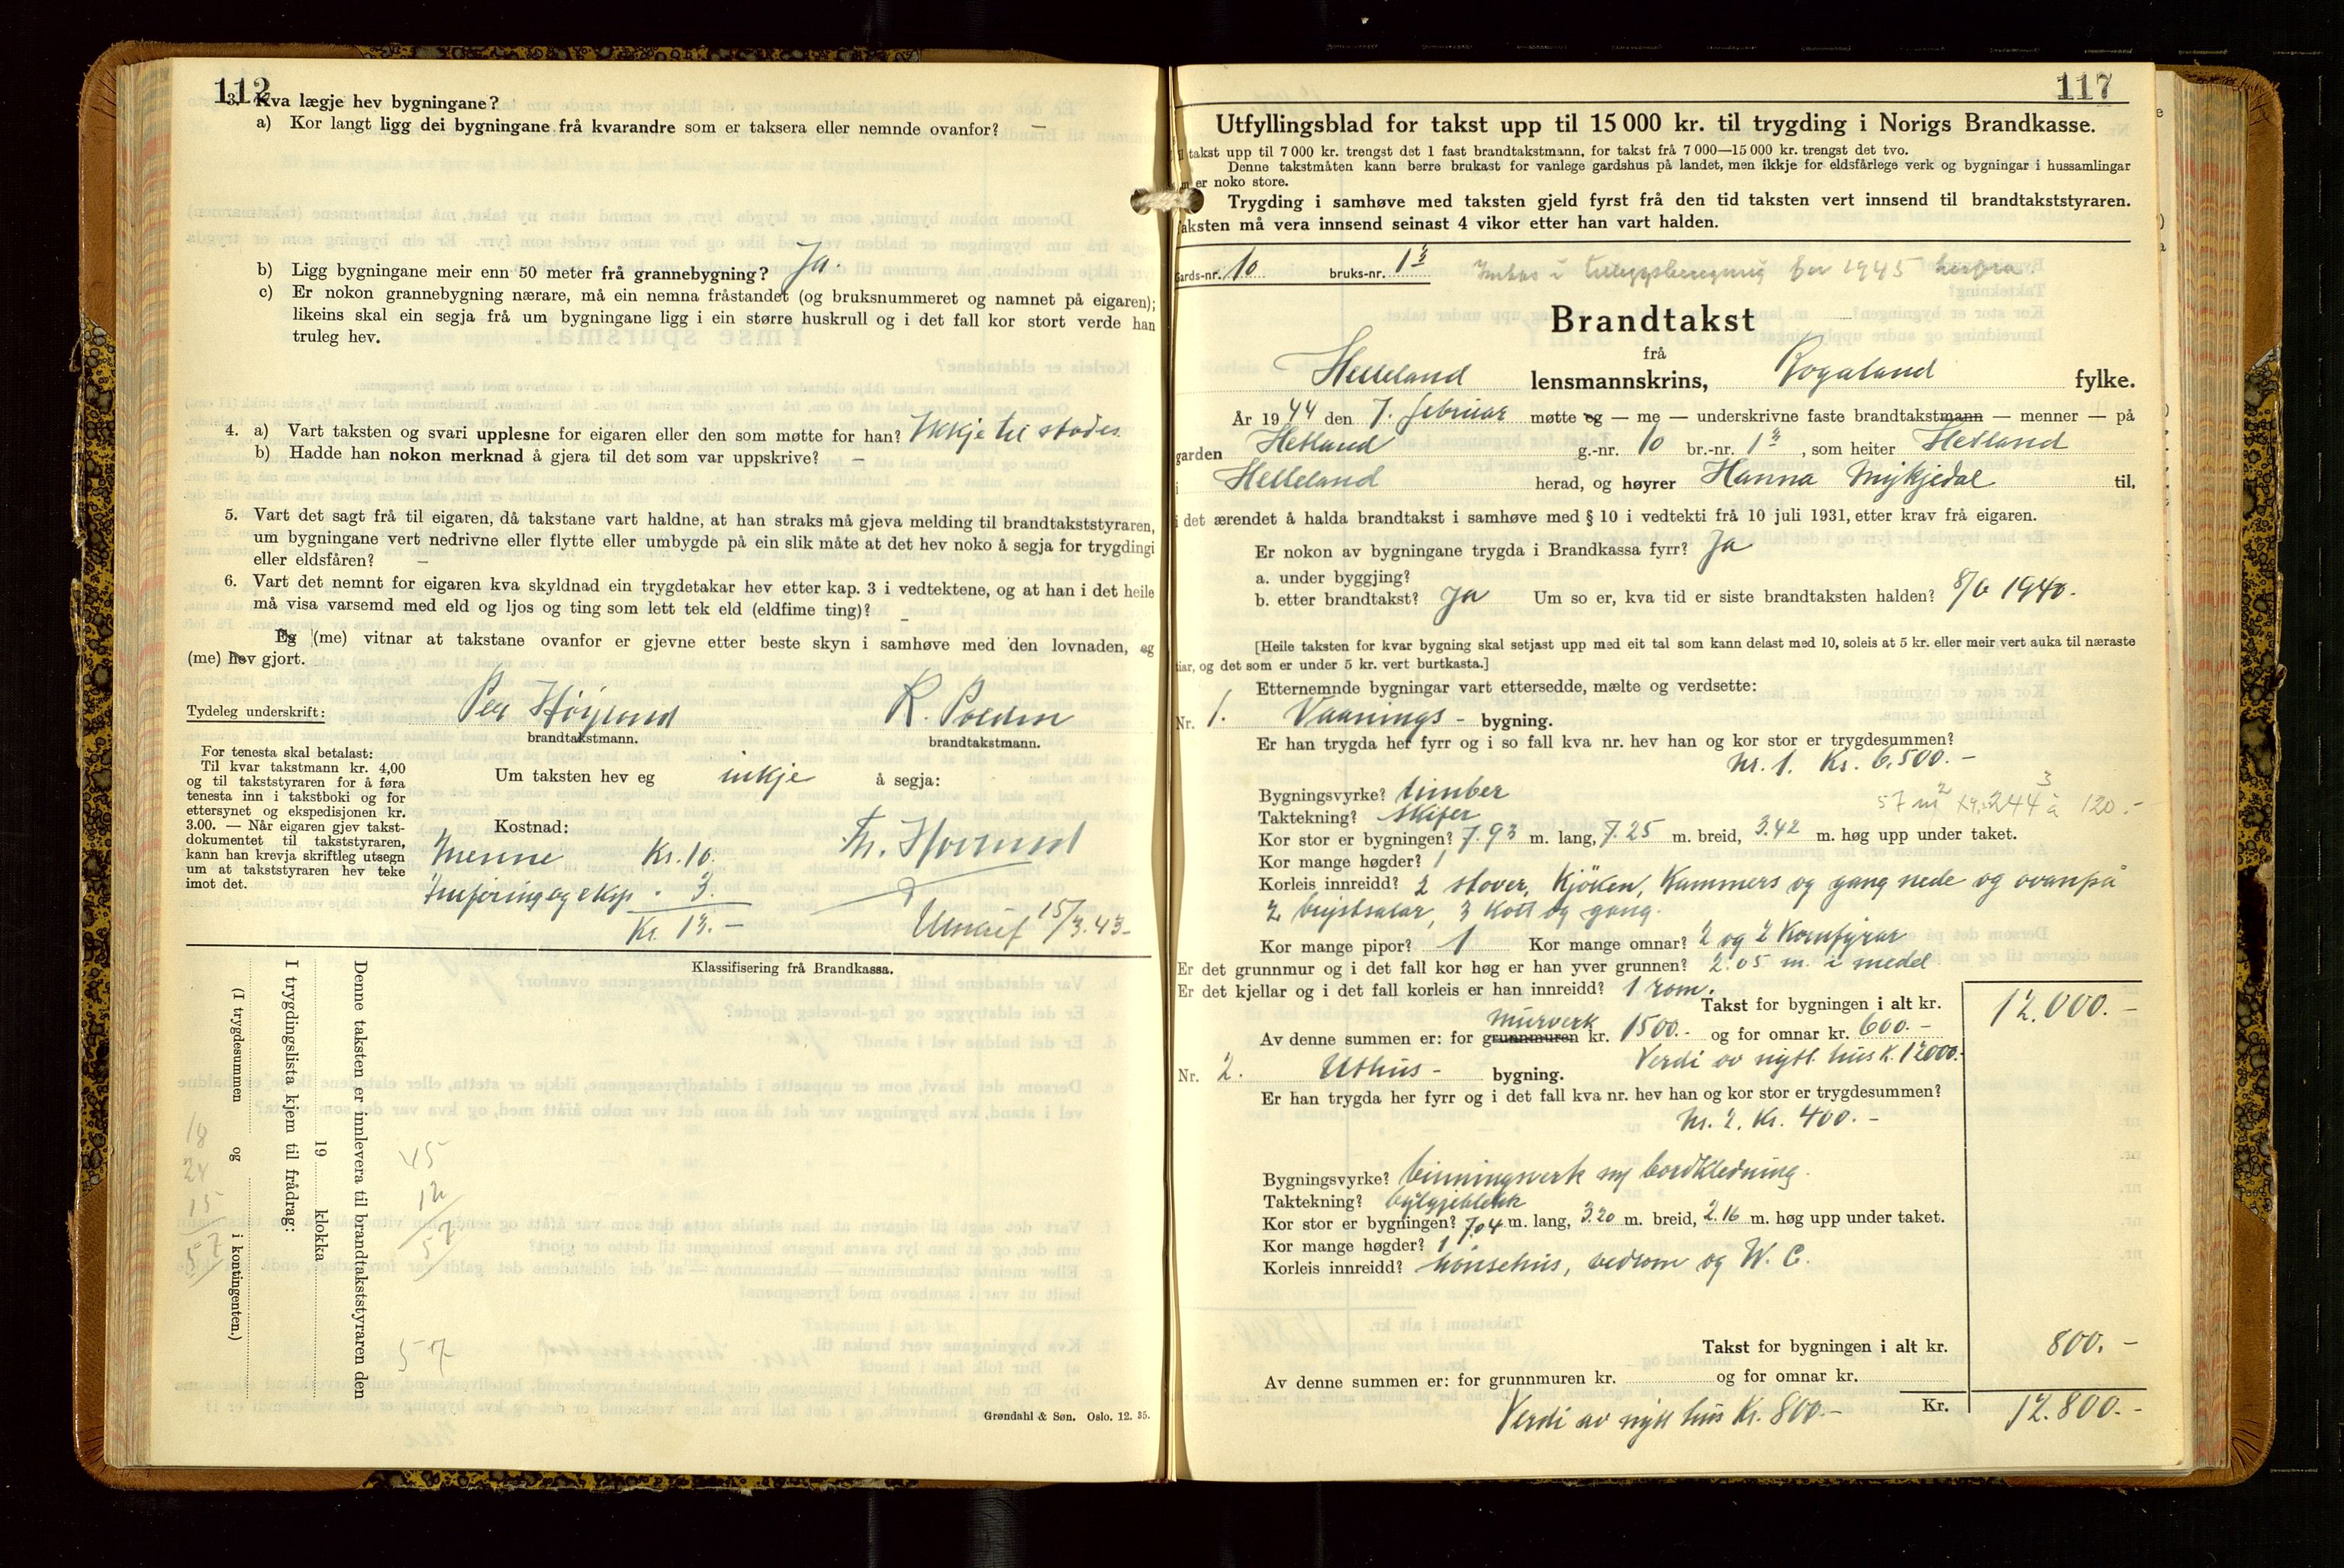 112
3. Kva lægje hev bygningane?
a) Kor langt ligg dei bygningane frå kvarandre som er taksera eller nemnde ovanfor? —
b) Ligg bygningane meir enn 50 meter frå grannebygning? Ja.
c) Er nokon grannebygning nærare, må ein nemna fråstandet (og bruksnummeret og namnet på eigaren);
likeins skal ein segja frå um bygningane ligg i ein større huskrull og i det fall kor stort verde han
truleg hev.
4. a) Vart taksten og svari upplesne for eigaren eller den som møtte for han? Ikkje til stades
b) Hadde han nokon merknad å gjera til det som var uppskrive? —
5. Vart det sagt frå til eigaren, då takstane vart haldne, at han straks må gjeva melding til brandtakststyraren,
um bygningane vert nedrivne eller flytte eller umbygde på ein slik måte at det hev noko å segja for trygdingi
eller eldsfåren? —
6. Vart det nemnt for eigaren kva skyldnad ein trygdetakar hev etter kap. 3 i vedtektene, og at han i det heile
må visa varsemd med eld og ljos og ting som lett tek eld (eldfime ting)? —
Eg (me) vitnar at takstane ovanfor er gjevne etter beste skyn i samhøve med den lovnaden, eg
(me) hev gjort.
Tydeleg underskrift: Per Høyland R. Polden
brandtakstmann. brandtakstmann.
For tenesta skal betalast:
Til kvar takstmann kr. 4,00
og til takststyraren for å føra
tenesta inn i takstboki og for
ettersynet og ekspedisjonen kr.
3.00. — Når eigaren gjev takst-
dokumentet til takststyraren,
kann han krevja skriftleg utsegn
um at takststyraren hev teke
imot det.
Um taksten hev eg inkje å segja:
Kostnad:
Menne Kr. 10.
Innføring og eksp. - 3
Kr. 13.-
15/3.43-
Klassifisering frå Brandkassa.
Denne taksten er innlevera til brandtakststyraren den
19 klokka
I trygdingslista kjem til frådrag:
(I trygdesummen og i kontingenten.)
18
24
15
57
45
12
57
57
Grøndahl & Søn. Oslo. 12. 35.
117
Utfyllingsblad for takst upp til 15 000 kr. til trygding i Norigs Brandkasse.
takst upp til 7 000 kr. trengst det 1 fast brandtakstmann, for takst frå 7 000—15 000 kr. trengst det tvo.
Denne takstmåten kann berre brukast for vanlege gardshus på landet, men ikkje for eldsfårlege verk og bygningar i hussamlingar
er noko store.
Trygding i samhøve med taksten gjeld fyrst frå den tid taksten vert innsend til brandtakststyraren.
aksten må vera innsend seinast 4 vikor etter han vart halden.
Gards-nr. 10 bruks-nr. 1 i tilleggsberegning for 1945 herfra.
Brandtakst
frå
Helleland lensmannskrins, Rogaland fylke.
År 1944 den 7. februar møtte eg — me — underskrivne faste brandtakstmann — menner — på
garden Hetland g.-nr. 10 br.-nr. 1, som heiter Hetland
i Helleland herad, og høyrer Hanna Mykjedal til,
i det ærendet å halda brandtakst i samhøve med § 10 i vedtekti frå 10 juli 1931, etter krav frå eigaren.
Er nokon av bygningane trygda i Brandkassa fyrr? Ja
a. under byggjing?
b. etter brandtakst? Ja Um so er, kva tid er siste brandtaksten halden? 8/6 1940.
[Heile taksten for kvar bygning skal setjast upp med eit tal som kann delast med 10, soleis at 5 kr. eller meir vert auka til næraste
tiar, og det som er under 5 kr. vert burtkasta.]
Etternemnde bygningar vart ettersedde, mælte og verdsette:
Nr. 1. Vaanings- bygning.
Er han trygda her fyrr og i so fall kva nr. hev han og kor stor er trygdesummen?
Nr. 1. Kr. 6.500.-
Bygningsvyrke? timber
57 m² 244 à 120.-
Taktekning? skifer
Kor stor er bygningen? 7.93 m. lang, 7.25 m. breid, 3.42 m. høg upp under taket.
Kor mange høgder? 1
Korleis innreidd? 2 stover, Kjöken, Kammers og gang nede og ovanpå
2 brystsalar, 3 kott og gang.
Kor mange pipor? 1 Kor mange omnar? 2 og 2 Komfyrar
Er det grunnmur og i det fall kor høg er han yver grunnen? 2.05 m. i medel
Er det kjellar og i det fall korleis er han innreidd? 1 rom.
Takst for bygningen i alt kr. 12.000.-
murverk
Av denne summen er: for grunnmuren kr. 1500.- og for omnar kr. 600.-
Verdi av nytt hus K. 12000.-
Nr. 2. Uthus- bygning.
Er han trygda her fyrr og i det fall kva nr. hev han og kor stor er trygdesummen?
Nr. 2. Kr. 400.-
Bygningsvyrke? binningsverk m/ bordkledning.
Taktekning? bylgjeblekk
Kor stor er bygningen? 7.04 m. lang, 3.20 m. breid, 2.16 m. høg upp under taket.
Kor mange høgder? 1
Korleis innreidd? hönsehus, vedrom og W. C.
Takst for bygningen i alt kr. 800.-
Av denne summen er: for grunnmuren kr. og for omnar kr.
Kr. 12.800.-
Verdi av nytt hus Kr. 800.-